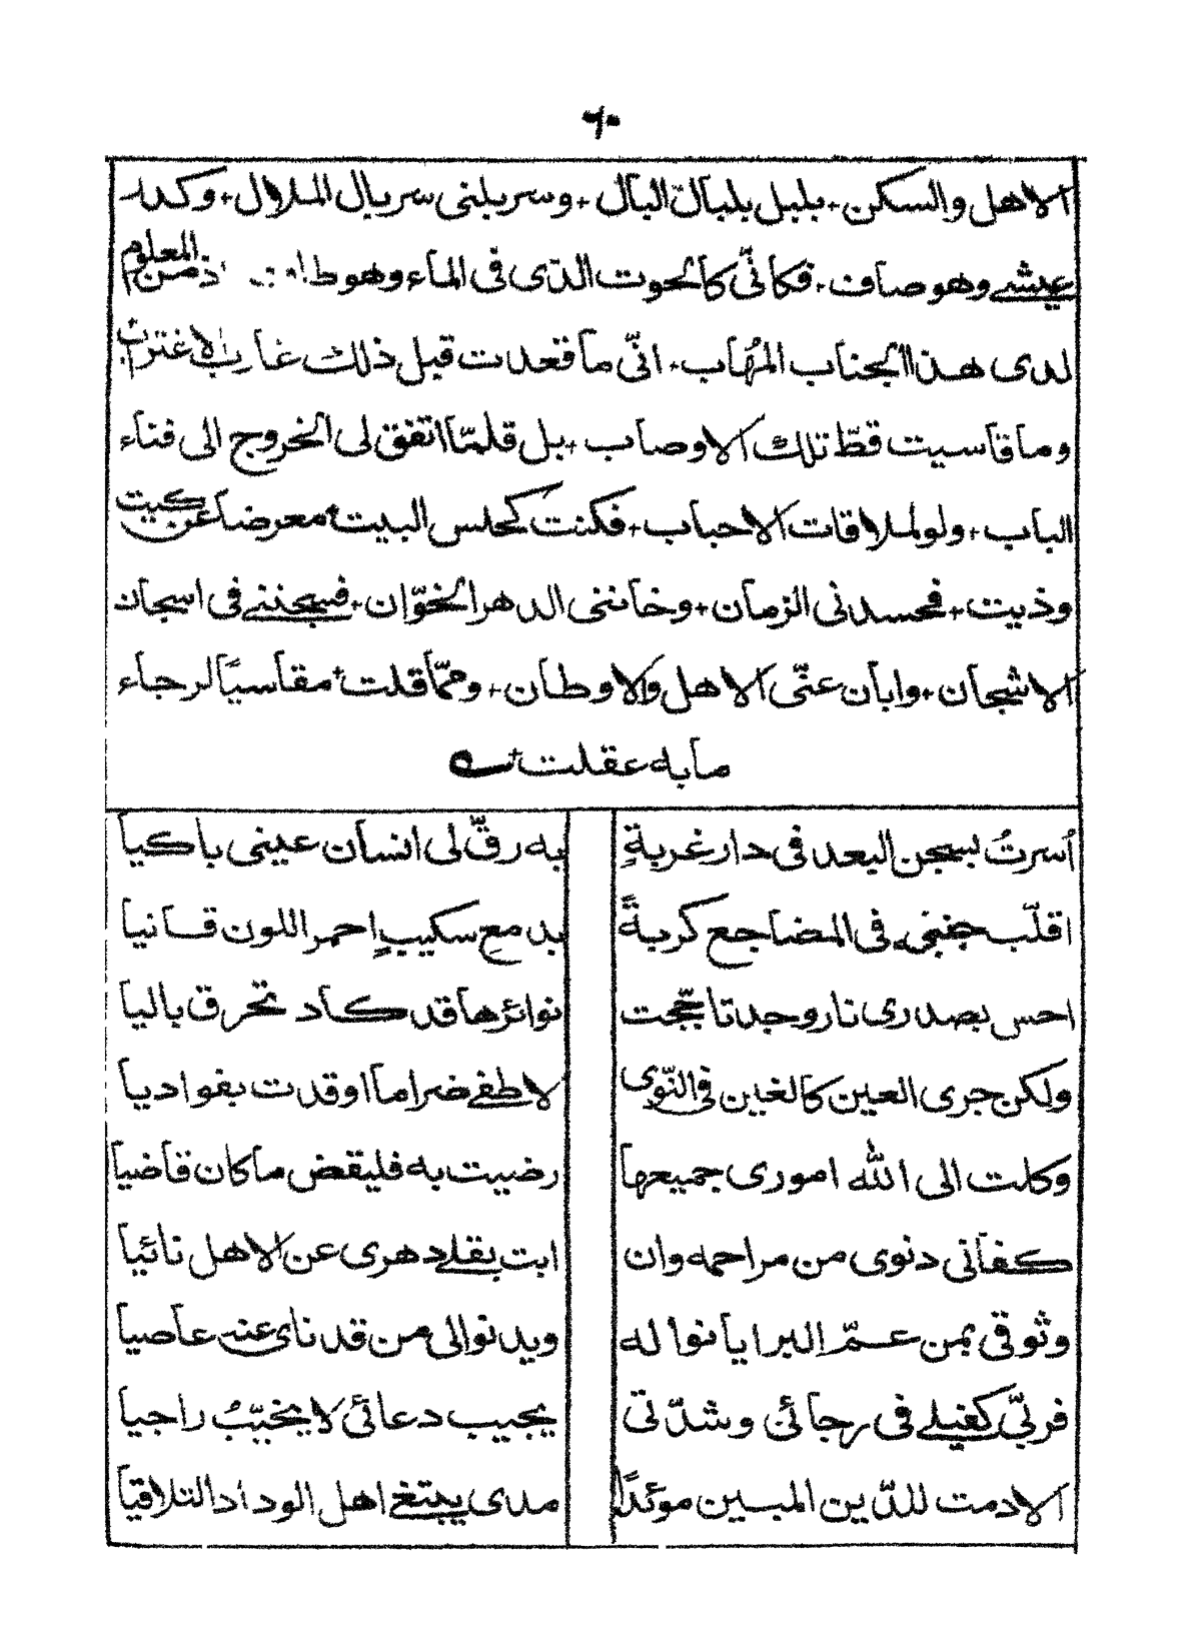 ٦٠
الاهل والسكن٠ بلبل بلبال البال٠ وسربلنى سربال الملال٠ وكدر
عيشے وهو صاف٠ فكانّى كالحوت الذى فى الماء وهو طا اذ من المعلوم
لدى هذا الجناب المُهاب٠ انّى ما قعدت قبل ذلك غارب الاغتراب
وما قاسيت قطّ تلك الاوصاب٠ بل قلمّا اتفق لى الخروج الى فناء
الباب٠ ولو لملاقات الاحباب٠ فكنت كحلس البيت٠ معرضا عن كيت
وذيت٠ فحسدنى الزمان٠ وخاننى الدهر الخوّان٠ فسجننے فى اسجان
الاشجان٠ وابان عنّى الاهل والاوطان٠ وممّا قلت٠ مقاسيًا لرجاء
ما به عقلت٠
اُسرتُ بسجن البعد فى دار غربةٍ به رقّ لى انسان عينى باكيا
اقلّب جنبى فى المضاجع كربةً بدمع سكيبٍ احمر اللون قانيا
احس بصدرى نار وجد تاجّجت نوائرها قد كاد تحرق باليا
ولكن جرى العين كالغين فى النّوى لاطفے ضراما اوقدت بفواديا
وكلت الى الله امورى جميعها رضيت به فليقض ما كان قاضيا
كفانى دنوى من مراحمه وان ابت بقلے دهرى عن الاهل نائيا
وثوقى بمن عمّ البرايا نواله ويدنو الى من قد ناى عنه عاصيا
فربّى كفيلے فى رجائى وشدّتى يجيب دعائى لا يخيّبُ راجيا
الا دمت للدّين المبين موئدًا مدى يبتغے اهل الوداد التلاقيا